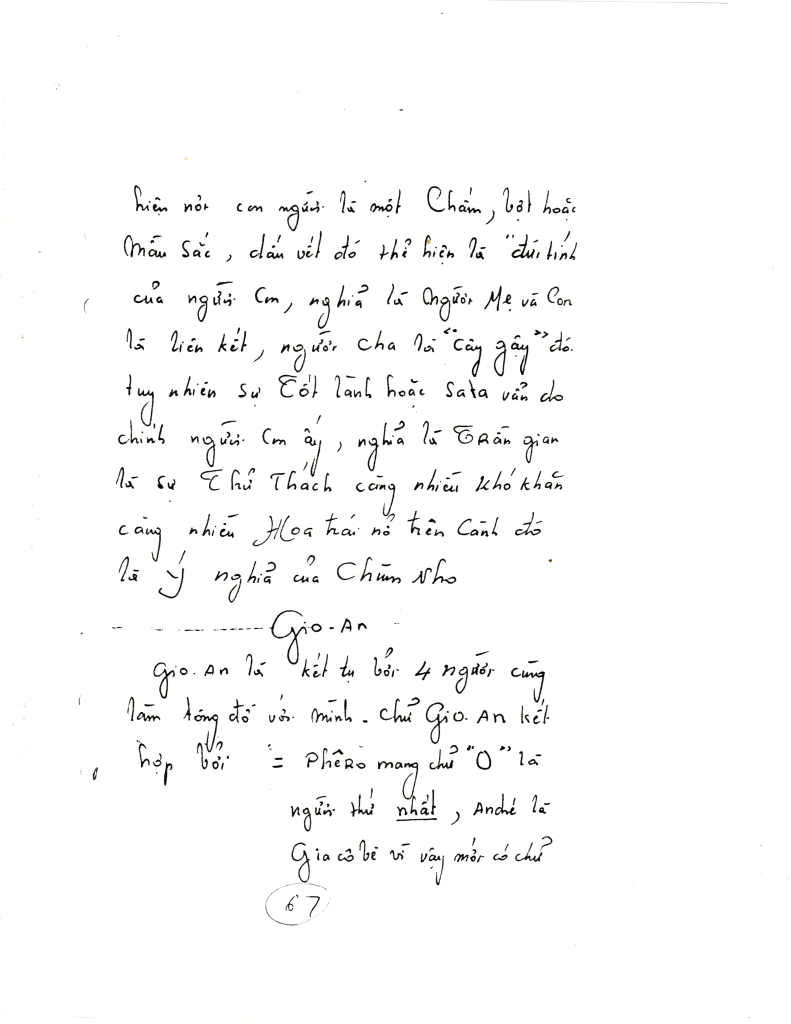 hiện nơi con người là một Chấm, bợt hoặc
Mầu Sắc, dấu vết đó thể hiện là "đức tính
của người Con, nghĩa là Người Mẹ và Con
là liên kết, người cha là "cây gậy" đó.
tuy nhiên sự Tốt lành hoặc Sata vẫn do
chính người Con ấy, nghĩa là TRần gian
là sự Thử Thách càng nhiều khó khăn
càng nhiều Hoa trái nở trên Cành đó
là Ý nghĩa của Chùm Nho
GiO-An
GiO.An là kết tụ bởi 4 người cùng
làm tông đồ với mình. chữ GiO.An kết
hợp bởi = PhêRO mang chữ "O" là
người thứ nhất, André là
Gia cô bê vì vậy mới có chữ
67